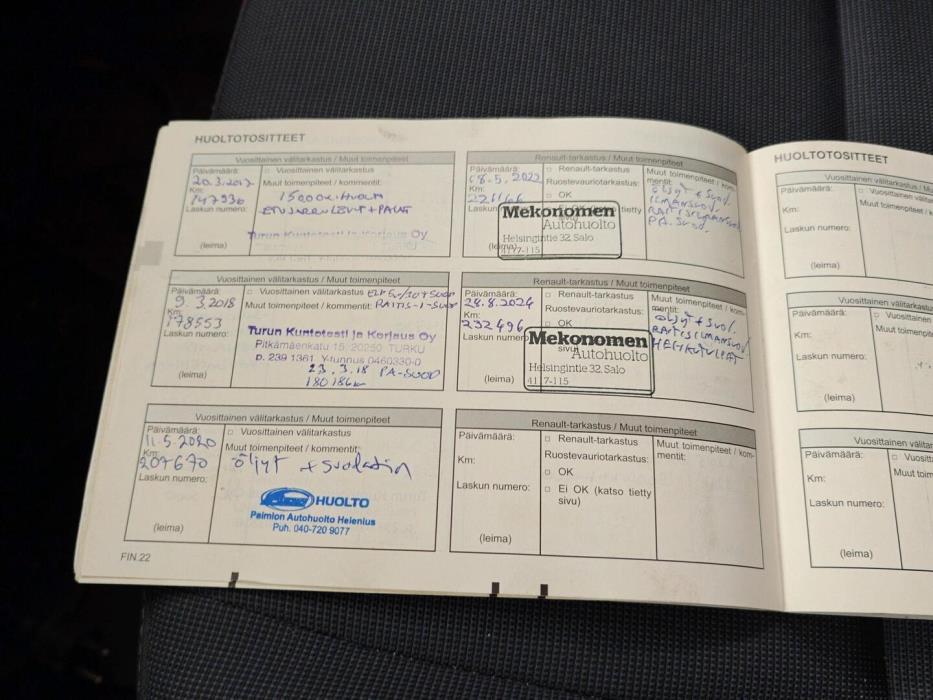 HUOLTOTOSITTEET
Vuosittainen välitarkastus / Muut toimenpiteet
Päivämäärä:
20.3.2017
Km:
147936
Laskun numero:
(leima)
□ Vuosittainen välitarkastus
Muut toimenpiteet / kommentit:
ETUJARRULEVYT + PALAT
Turun Kuntotesti ja Korjaus Oy
Renault-tarkastus / Muut toimenpiteet
Päivämäärä:
18.5.2022
Km:
Laskun
(leima)
□ Renault-tarkastus
Ruostevauriotarkastus:
□ OK
tietty
sivu)
Mekonomen
Autohuolto
Helsingintie 32 Salo
4177-115
Muut toimenpiteet / kom-
mentit:
ÖLJYT + SUOD.
ILMANSUOD.
RAITISILMANSUOD.
PA.SUOD.
Vuosittainen välitarkastus / Muut toimenpiteet
Päivämäärä:
9.3.2018
Km:
178553
Laskun numero:
(leima)
□ Vuosittainen välitarkastus
Muut toimenpiteet / kommentit:
RAITIS-I-SUOD
Turun Kuntotesti ja Korjaus Oy
Pitkämäenkatu 15, 20250 TURKU
Y-tunnus 0460330-0
23.3.18 PA-SUOD
180186km
Renault-tarkastus / Muut toimenpiteet
Päivämäärä:
28.8.2024
Km:
232496
Laskun numero
(leima)
□ Renault-tarkastus
Ruostevauriotarkastus:
□ OK
sivu)
Mekonomen
Autohuolto
Helsingintie 32 Salo
4177-115
Muut toimenpiteet / kom-
mentit:
öljyt + suod.
RAITISILMANSUOD
HEHKUTULPAT
Vuosittainen välitarkastus / Muut toimenpiteet
Päivämäärä:
11.5.2020
Km:
207670
Laskun numero:
(leima)
□ Vuosittainen välitarkastus
Muut toimenpiteet / kommentit:
öljyt + suodatin
HUOLTO
Paimion Autohuolto Helenius
Puh. 040-720 9077
Renault-tarkastus / Muut toimenpiteet
Päivämäärä:
Km:
Laskun numero:
(leima)
□ Renault-tarkastus
Ruostevauriotarkastus:
□ OK
□ Ei OK (katso tietty
sivu)
Muut toimenpiteet / kom-
mentit:
FIN.22
HUOLTOTOSITTEET
Vuosittainen välitarkastus / Mu
Päivämäärä:
Km:
Laskun numero:
(leima)
□ Vuosittainen
Muut toimenpit
Vuosittainen välitarkastus
Päivämäärä:
Km:
Laskun numero:
(leima)
□ Vuosittain
Muut toimenpi
Vuosittainen välitar
Päivämäärä:
Km:
Laskun numero:
(leima)
□ Vuosit
Muut toim